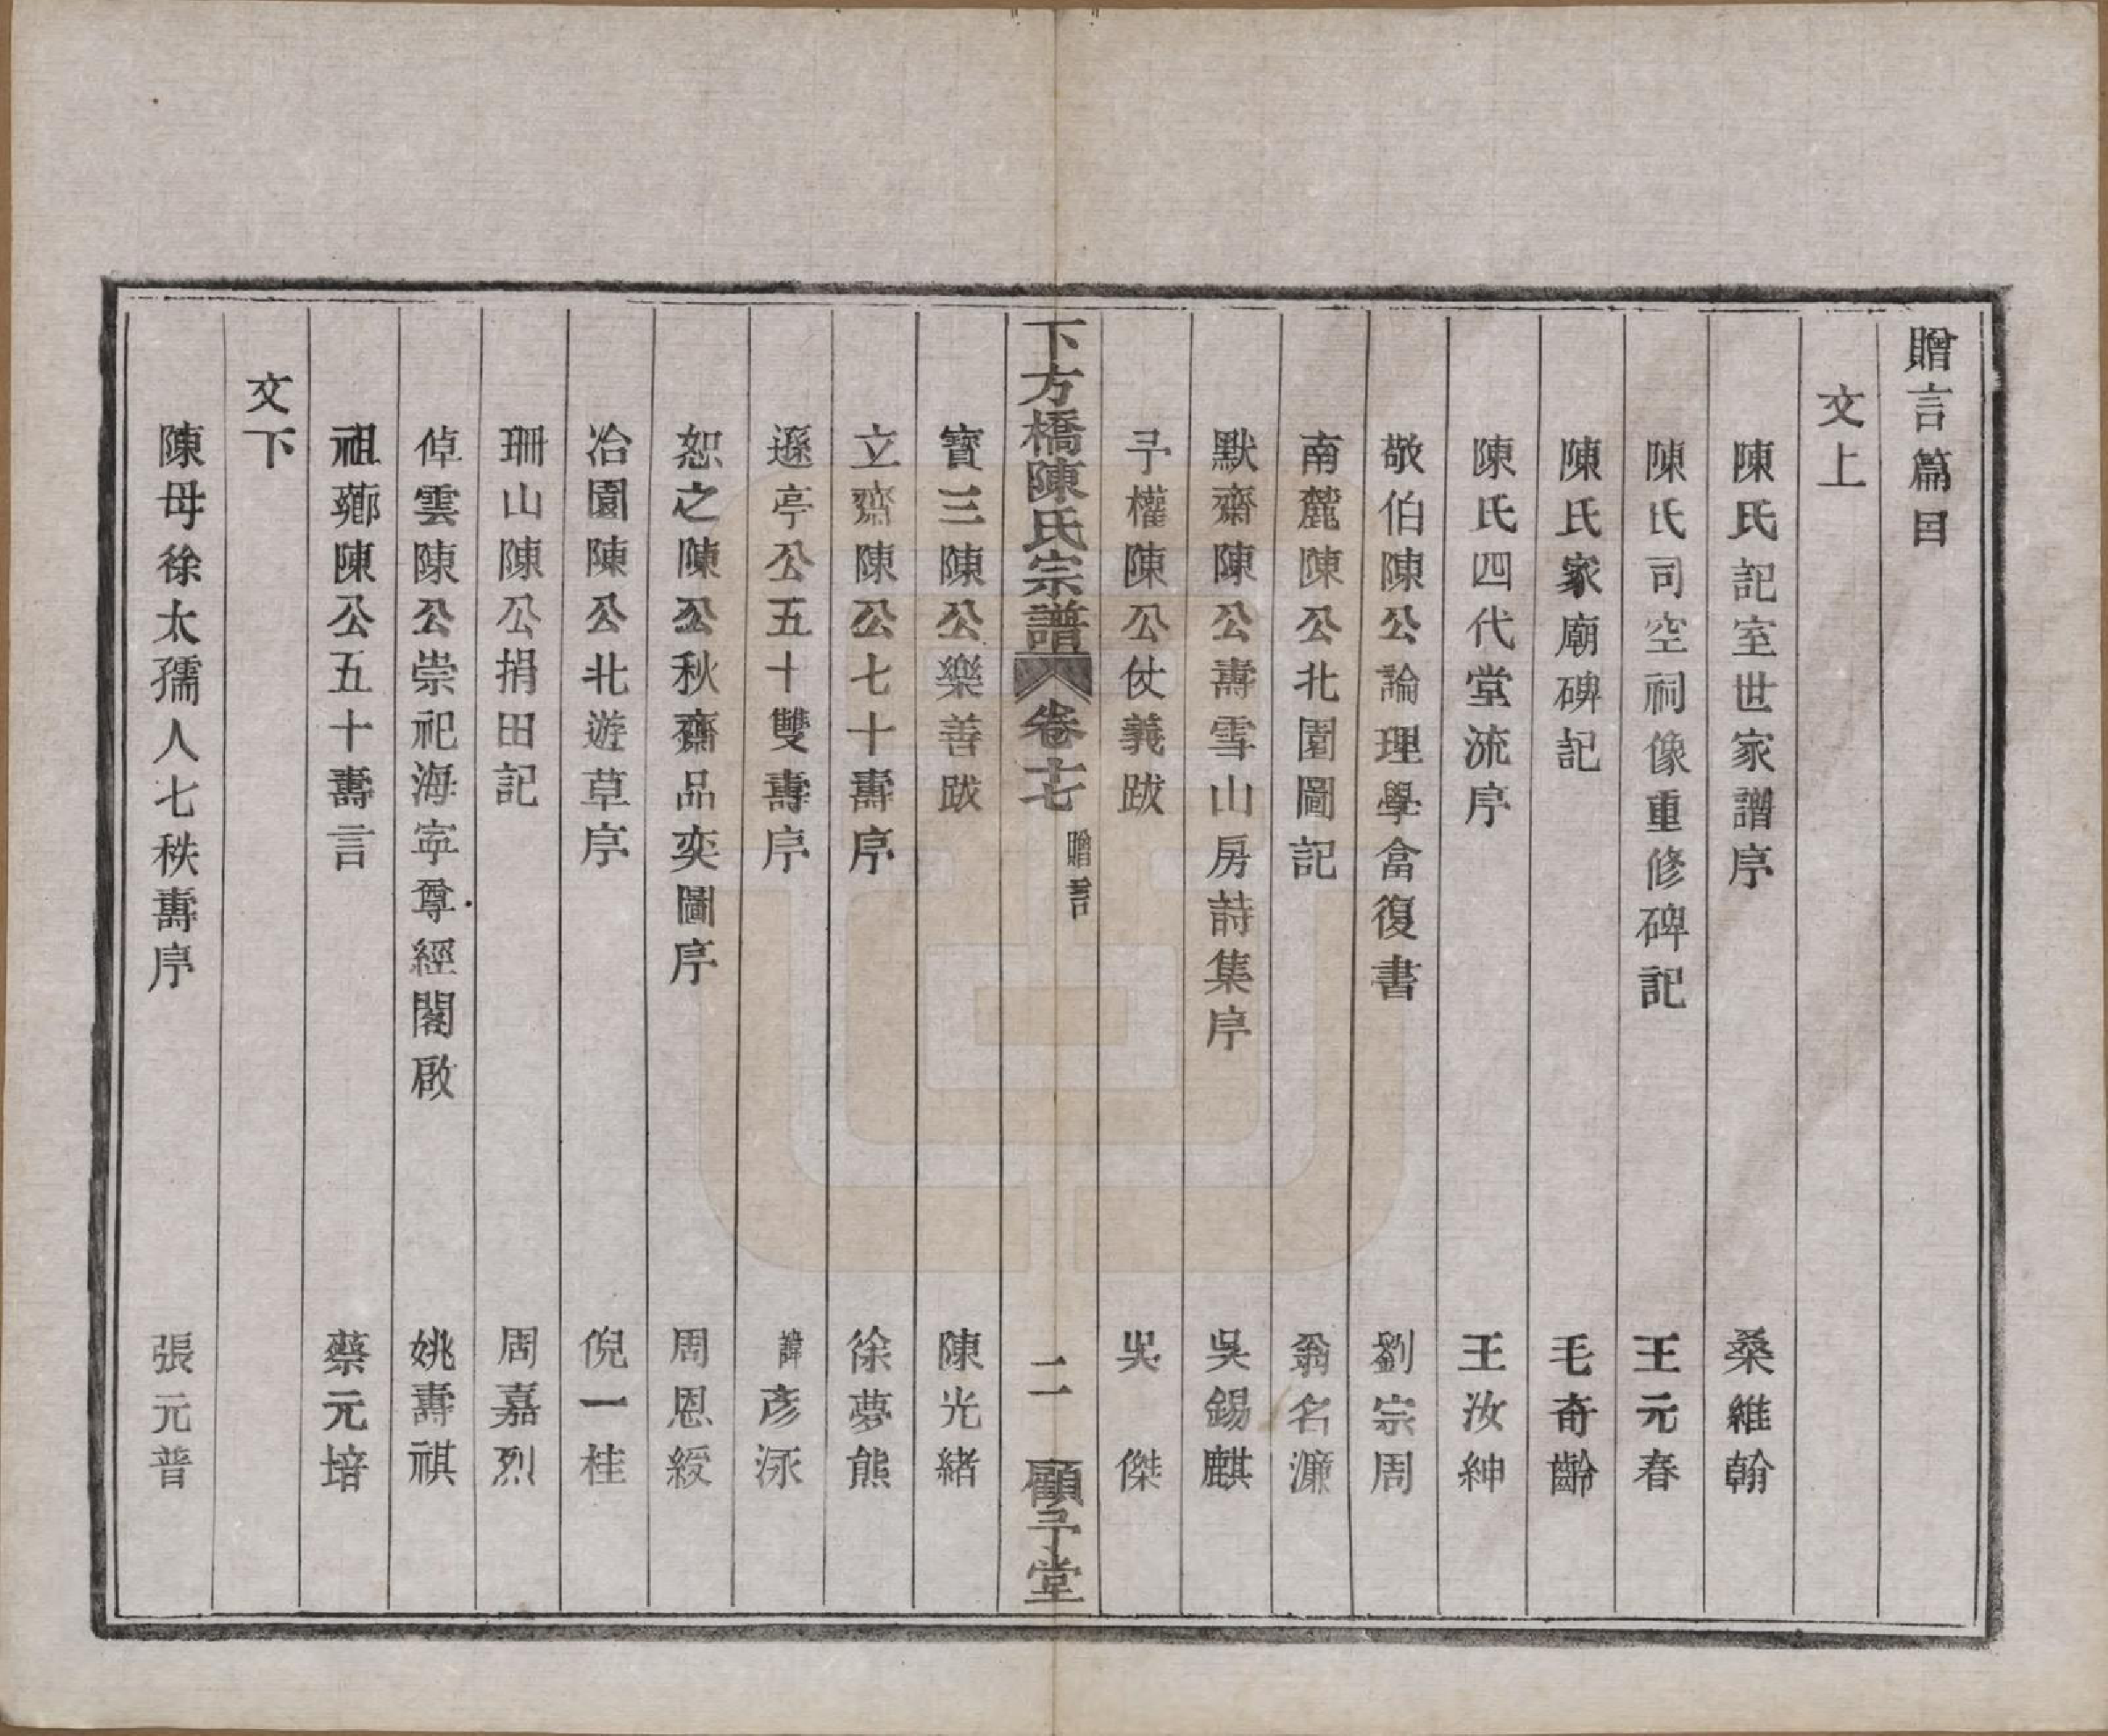 贈言篇目
文上
陳氏記室世家譜序 桑維翰
陳氏司空祠像重修碑記 王元春
陳氏家廟碑記 毛奇齡
陳氏四代堂流序 王汝紳
敬伯陳公論理學畣復書 劉宗周
南麓陳公北園圖記 翁名濂
默齋陳公壽雪山房詩集序 吳錫麒
予權陳公仗義跋 吳傑
下方橋陳氏宗譜 卷十七 贈言 二 顧予堂
寳三陳公樂善跋 陳光緒
立齋陳公七十壽序 徐夢熊
遜亭公五十雙壽序 諱彥泳
恕之陳公秋齋品奕圖序 周恩綬
冶園陳公北遊草序 倪一桂
珊山陳公捐田記 周嘉烈
倬雲陳公崇祀海寧尊經閣啟 姚壽祺
祖薌陳公五十壽言 蔡元培
文下
陳母徐太孺人七秩壽序 張元普